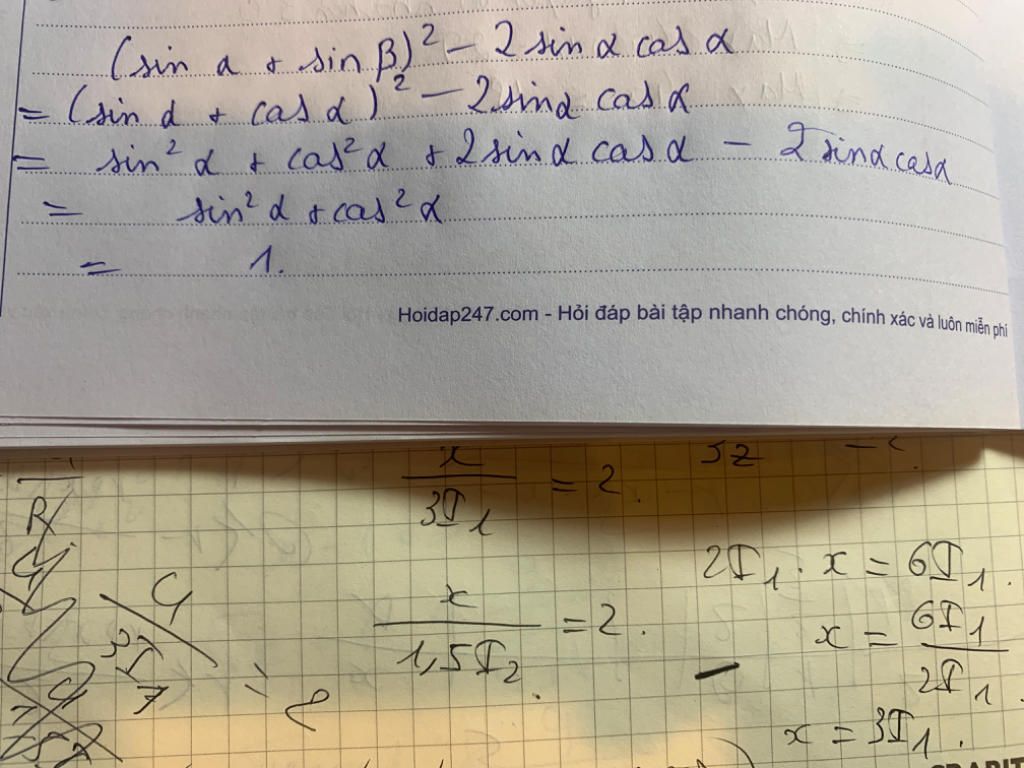 (sin α + sin β)² − 2 sin α cos α
= (sin α + cos α)² − 2 sin α cos α
= sin² α + cos² α + 2 sin α cos α − 2 sin α cos α
= sin² α + cos² α
= 1.
Hoidap247.com - Hỏi đáp bài tập nhanh chóng, chính xác và luôn miễn phí
x / 3I₁ = 2.
2I₁ . x = 6I₁.
x / 1,5I₂ = 2.
x = 6I₁ / 2I₁
x = 3I₁.